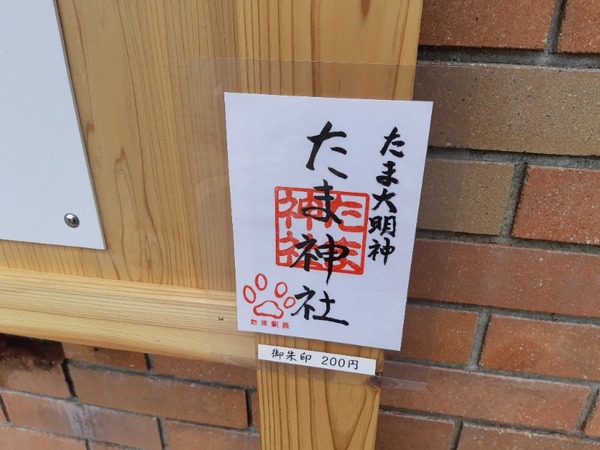 たま大明神
たま神社
たま
神社
たま駅長
御朱印 200円